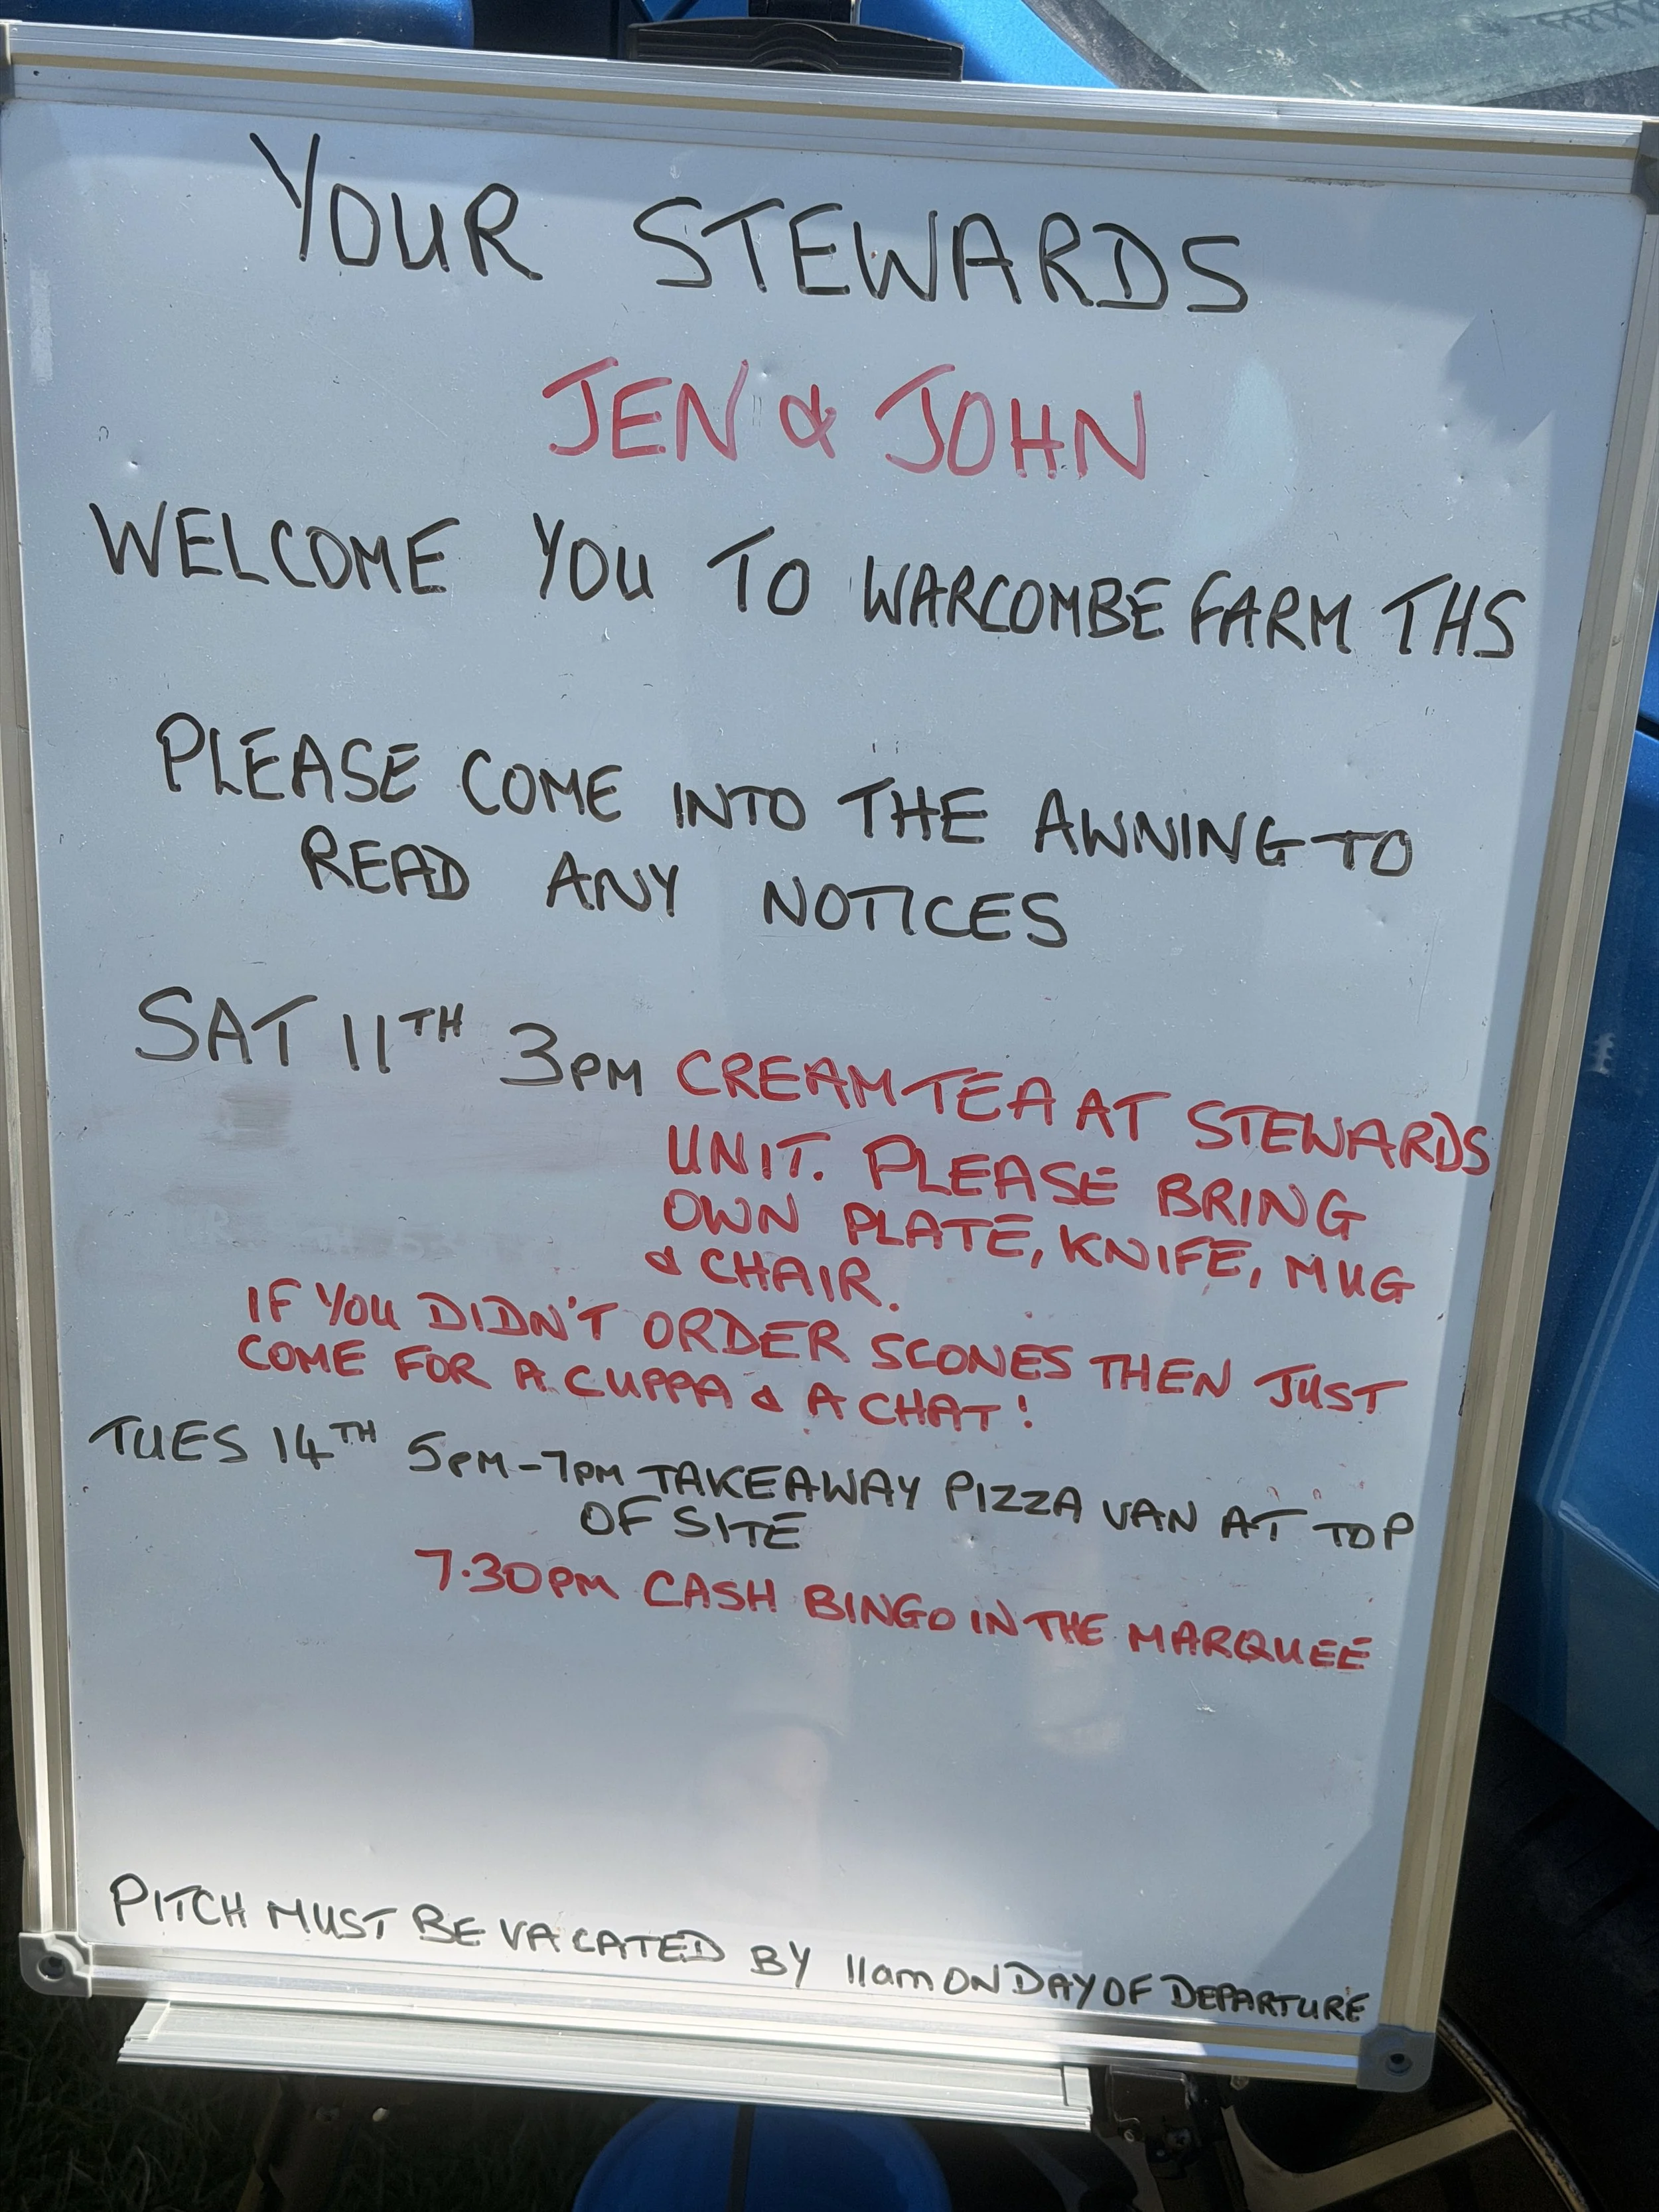 YOUR STEWARDS
JEN & JOHN
WELCOME YOU TO WARCOMBE FARM THS
PLEASE COME INTO THE AWNING TO
READ ANY NOTICES
SAT 11TH 3PM CREAM TEA AT STEWARDS
UNIT. PLEASE BRING
OWN PLATE, KNIFE, MUG
& CHAIR.
IF YOU DIDN'T ORDER SCONES THEN JUST
COME FOR A CUPPA & A CHAT!
TUES 14TH 5PM-7PM TAKEAWAY PIZZA VAN AT TOP
OF SITE
7.30PM CASH BINGO IN THE MARQUEE
PITCH MUST BE VACATED BY 11am ON DAY OF DEPARTURE